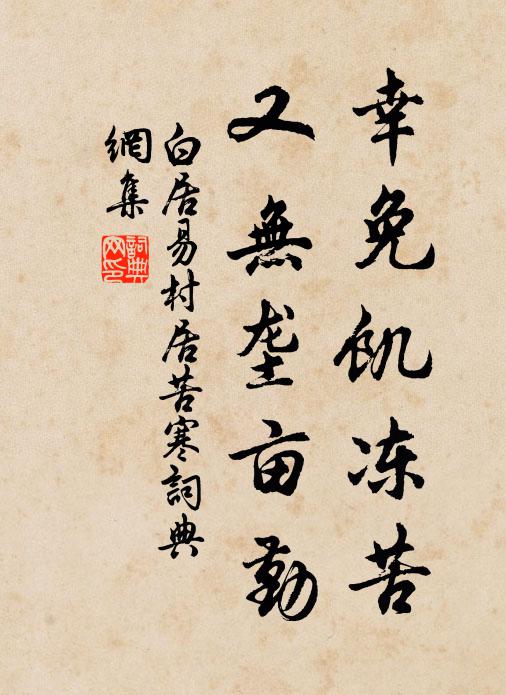 幸免飢冻苦
又無垄亩勤
白居易村居苦寒詞典
網集
詞典
网印